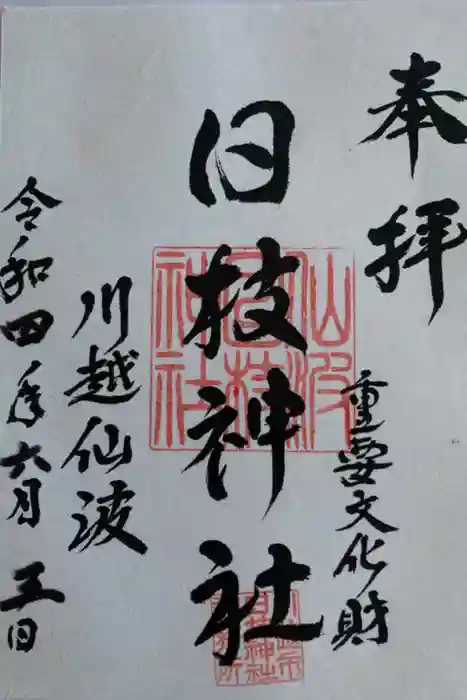 奉拝
重要文化財
日枝神社
仙波
日枝
神社
川越仙波
令和四年六月三日